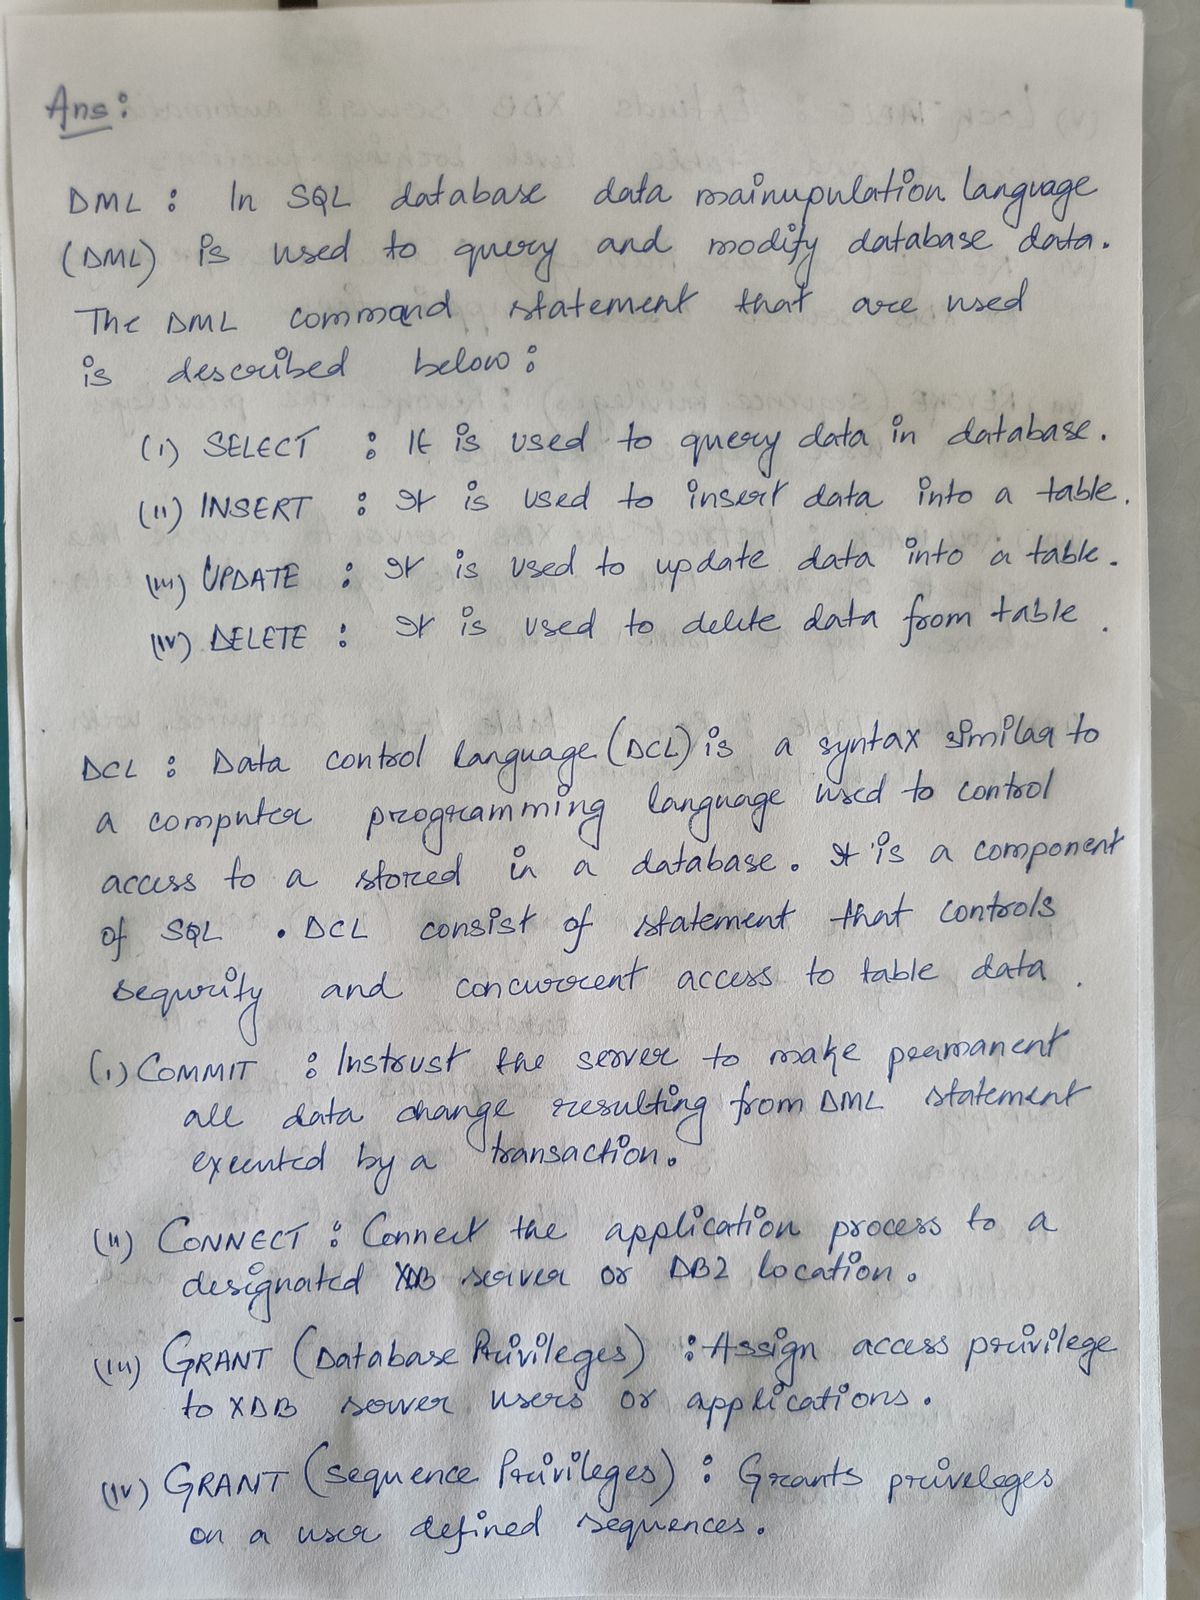 Ans:
DML : In SQL database data mainupulation language
(DML) is used to query and modify database data.
The DML command statement that are used
is described below :
(i) SELECT : It is used to query data in database.
(ii) INSERT : It is used to insert data into a table.
(iii) UPDATE : It is used to update data into a table.
(iv) DELETE : It is used to delete data from table.
DCL : Data control language (DCL) is a syntax similar to
a computer programming language used to control
access to a stored in a database. It is a component
of SQL . DCL consist of statement that controls
sequrity and concurrent access to table data.
(i) COMMIT : Instrust the server to make permanent
all data change resulting from DML statement
executed by a transaction.
(ii) CONNECT : Connect the application process to a
designated XDB server or DB2 location.
(iii) GRANT (Database Privileges) : Assign access privilege
to XDB server users or applications.
(iv) GRANT (Sequence Privileges) : Grants priveleges
on a user defined sequences.